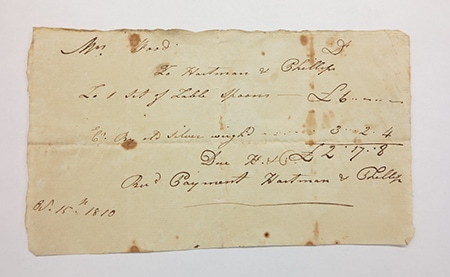 Mr. Wood Dr
To Hartman & Phillips
To 1 Set of Table Spoons — £ 6 " — " —
Cr. By old Silver weighd 3 " 2 " 4
Due H. & P. £ 2 " 17 " 8
Recd Payment Hartman & Phillips
15th 1810